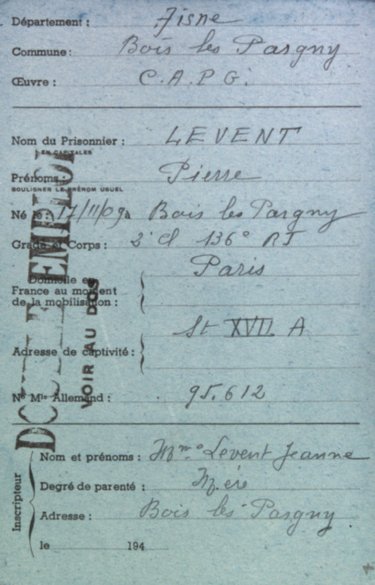 Département : Aisne
Commune : Bois les Pargny
Œuvre : C.A.P.G.
Nom du Prisonnier : LEVENT
EN CAPITALES
Prénoms : Pierre
SOULIGNER LE PRÉNOM USUEL
Né le : 17/11/09 à Bois les Pargny
Grade et Corps : 2e Cl 136e RI
Domicile en
France au moment
de la mobilisation :
Paris
St XVII A
Adresse de captivité :
No Mle Allemand : 95.612
DOUBLE EMPLOI
VOIR AU DOS
Inscripteur
Nom et prénoms : Mme Levent Jeanne
Degré de parenté : Mère
Adresse : Bois les Pargny
le 194